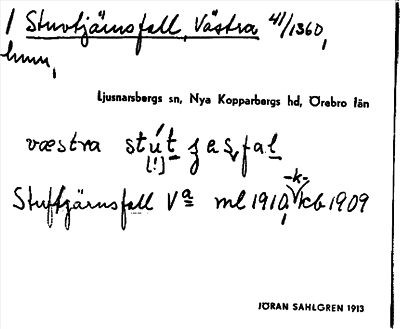 1 Stuvtjärnsfall, Västra 41/1360,
hmn,
Ljusnarsbergs sn, Nya Kopparbergs hd, Örebro län
væstra stút ȝasfal
[!]
-k-
Stuftjärnsfall Va ml 1910, kb 1909
JÖRAN SAHLGREN 1913